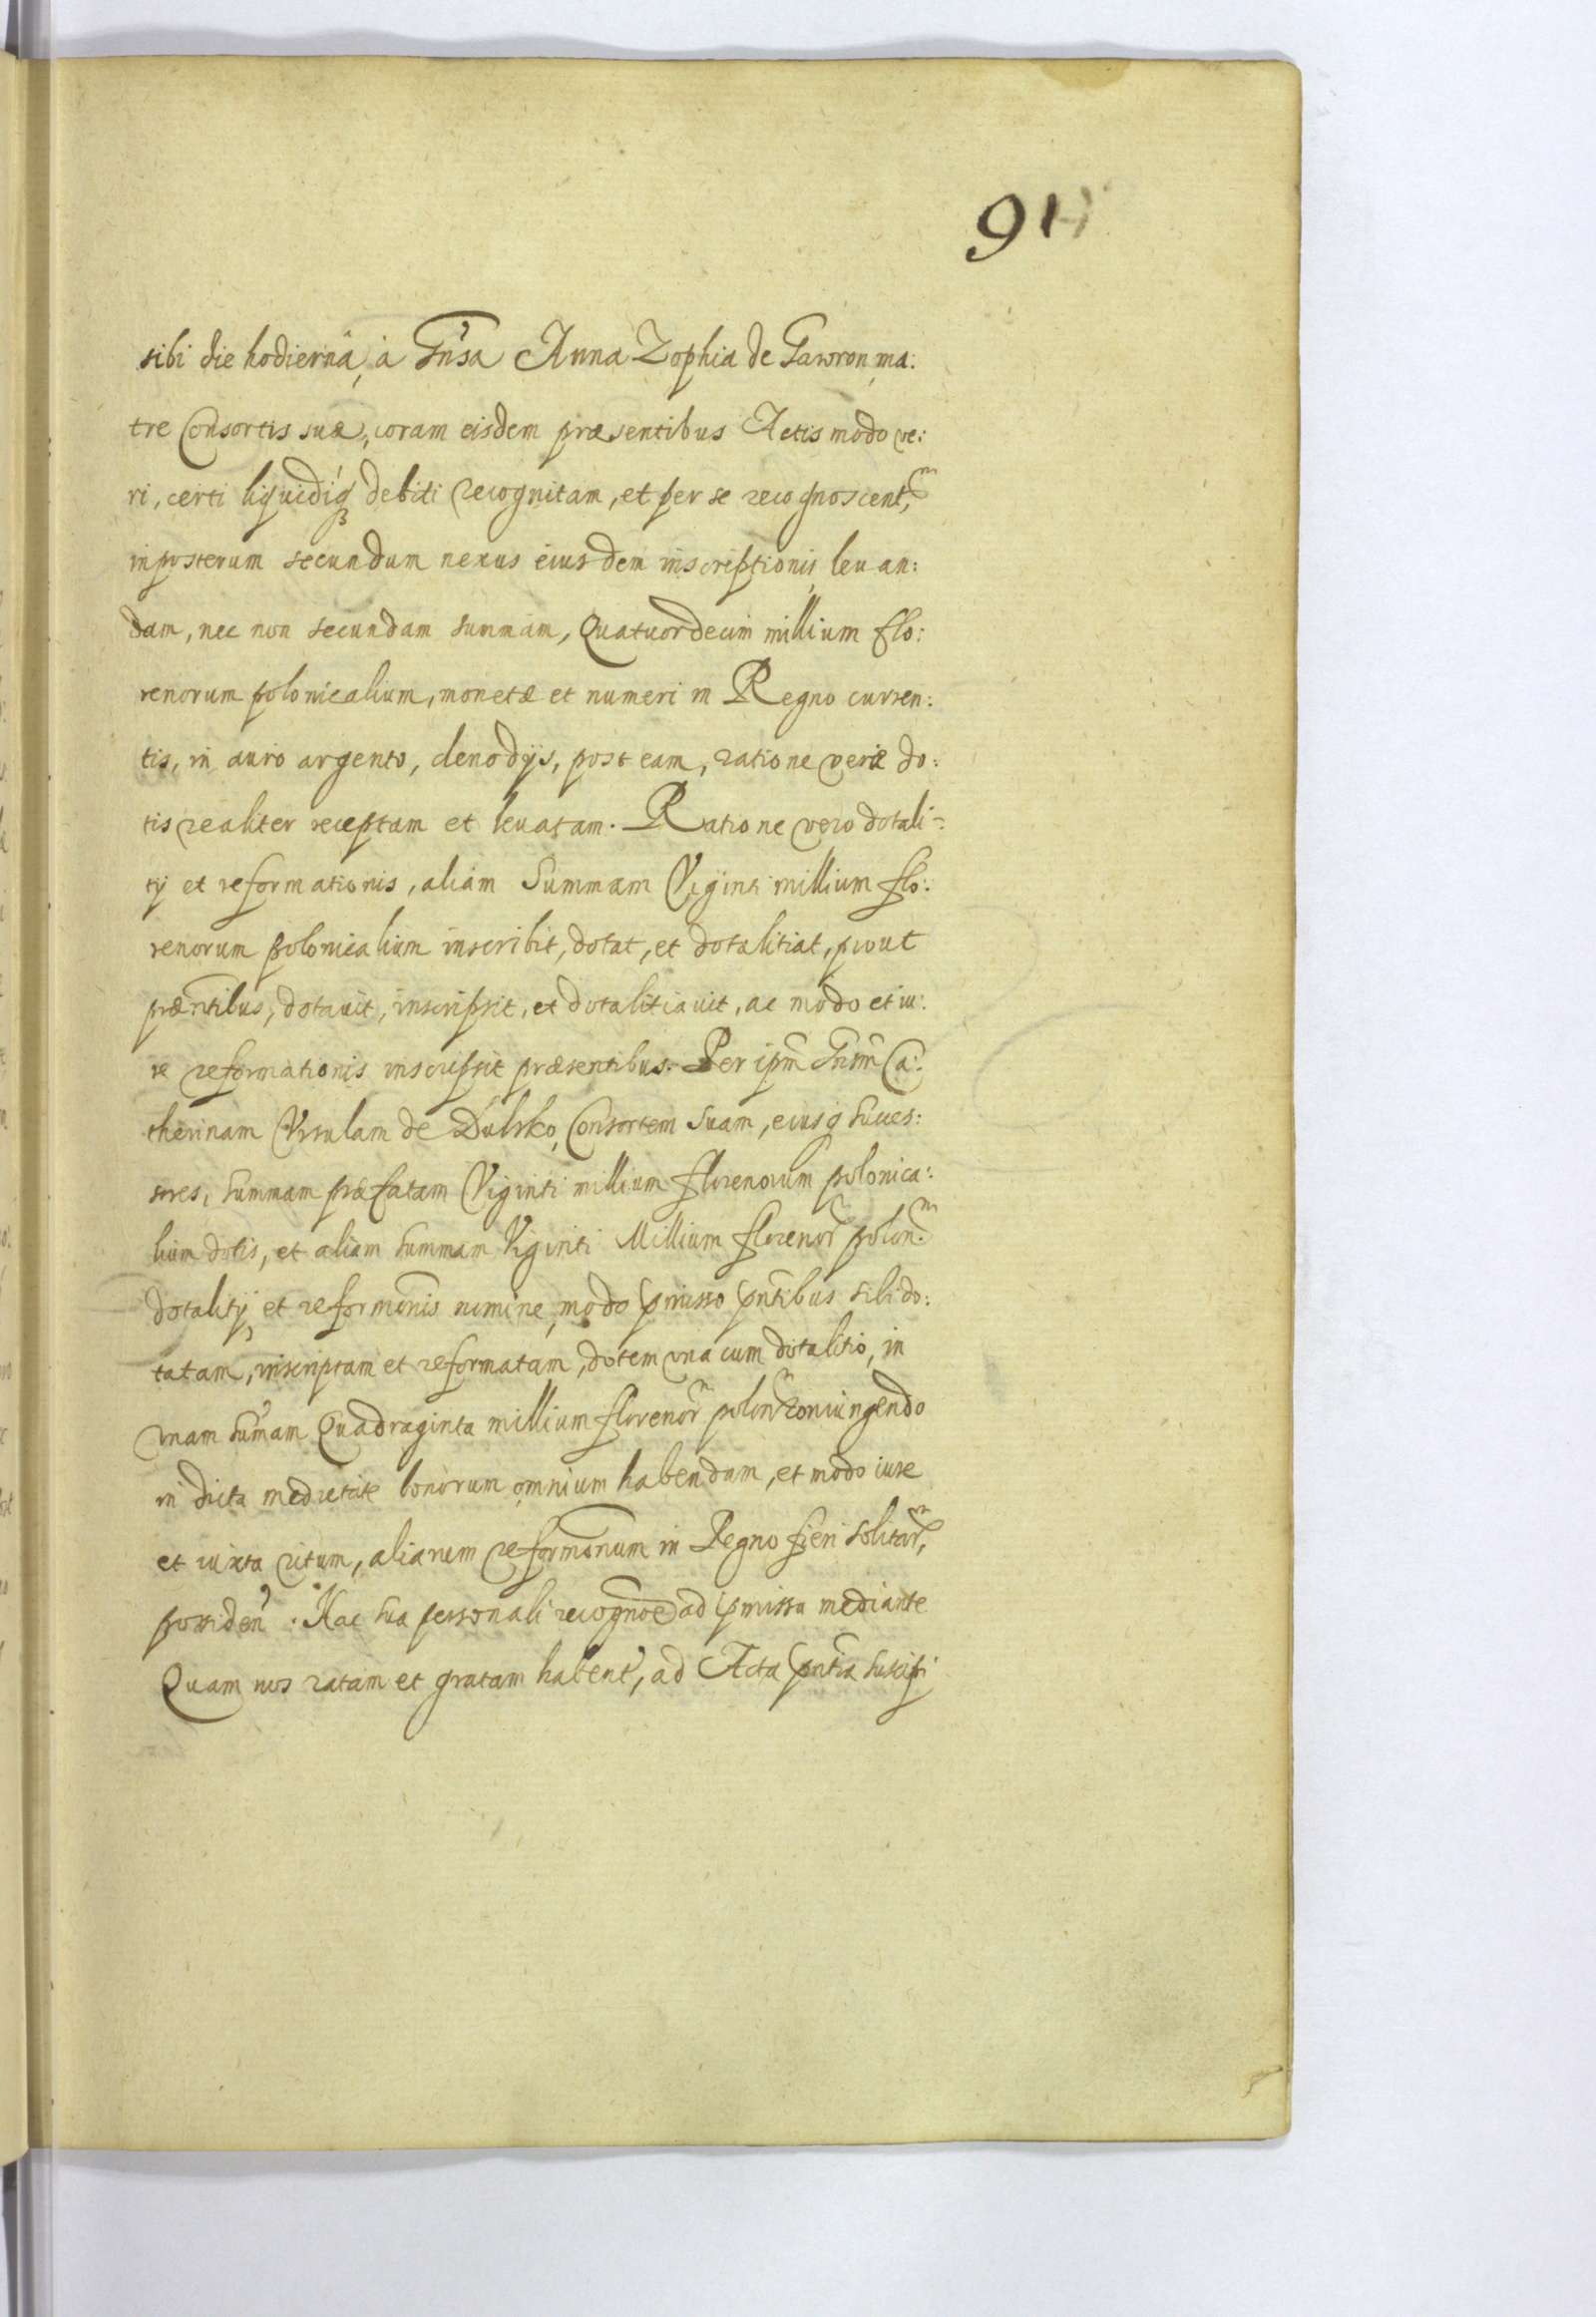 91
sibi die hodiernâ, à Gn̄sa Anna Zophia de Gawron, ma:
tre Consortis suæ, coram eisdem præsentibus Actis modo ve:
ri, certi liquidiq́ꝫ debiti recognitam, et per se recognoscent,
inposterum secundum nexus eiusdem inscriptionis, leuan:
dam, nec non secundam summam, Quatuordecim millium flo:
renorum polonicalium, monetæ et numeri in Regno curren:
tis, in auro argento, clenodijs, post eam, ratione veræ do:
tis realiter receptam et leuatam. Ratione vero dotali:
tij et reformationis, aliam Summam Viginti millium flo:
renorum polonicalium inscribit, dotat, et dotalitiat, prout
præn̄tibus, dotauit, inscripsit, et dotalitiauit, ac modo et iu:
re reformationis inscripsit præsentibus. Per ipm̄ Gn̄sm̄ Ca:
therinam Vrsulam de Dulsko, Consortem Suam, eiusq Succes:
sores, Summam præfatam Viginti millium florenorum polonica:
lium dotis, et aliam Summam Viginti Millium florenor̄ polon̄
dotalitij, et reform̄onis nomine, modo p̄misso pn̄tibus sibi do:
tatam, inscriptam et reformatam, dotem vna cum dotalitio, in
vnam Sum̄am Quadraginta millium florenor̄ polon̄ coniungendo
in dicta medietate bonorum omnium habendam, et modo iure
et iuxta ritum, aliarum reform̄onum in Regno fieri solitar̄,
possiden̄. Hac sua personali recogn̄oe ad p̄missa mediante
Quam nos ratam et gratam haben̄t, ad Acta pn̄tia suscipi